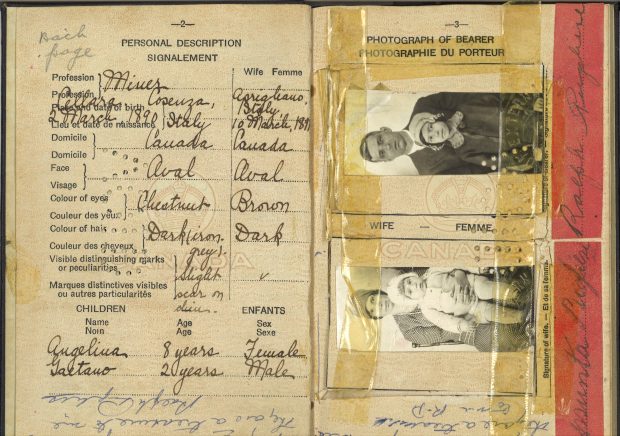 —2—
Back
page
PERSONAL DESCRIPTION
SIGNALEMENT
Wife Femme
Profession } Miner
Profession
Place and date of birth Cosenza, Aprigliano,
Italy
Lieu et date de naissance 2 March, Italy 10 March,
Domicile } Canada Canada
Domicile
Face } Oval Oval
Visage
Colour of eyes } Chestnut Brown
Couleur des yeux
Colour of hair } Dark (iron Dark
Couleur des cheveux grey)
Visible distinguishing marks
or peculiarities } slight "
Marques distinctives visibles
ou autres particularités scar on
chin.
CHILDREN ENFANTS
Name Age Sex
Nom Age Sexe
Angelina 8 years Female
Gaetano 2 years Male
They are a treasure to me
—3—
PHOTOGRAPH OF BEARER
PHOTOGRAPHIE DU PORTEUR
WIFE — FEMME
CANADA
Ralph
Signature of wife. — Et de sa femme.